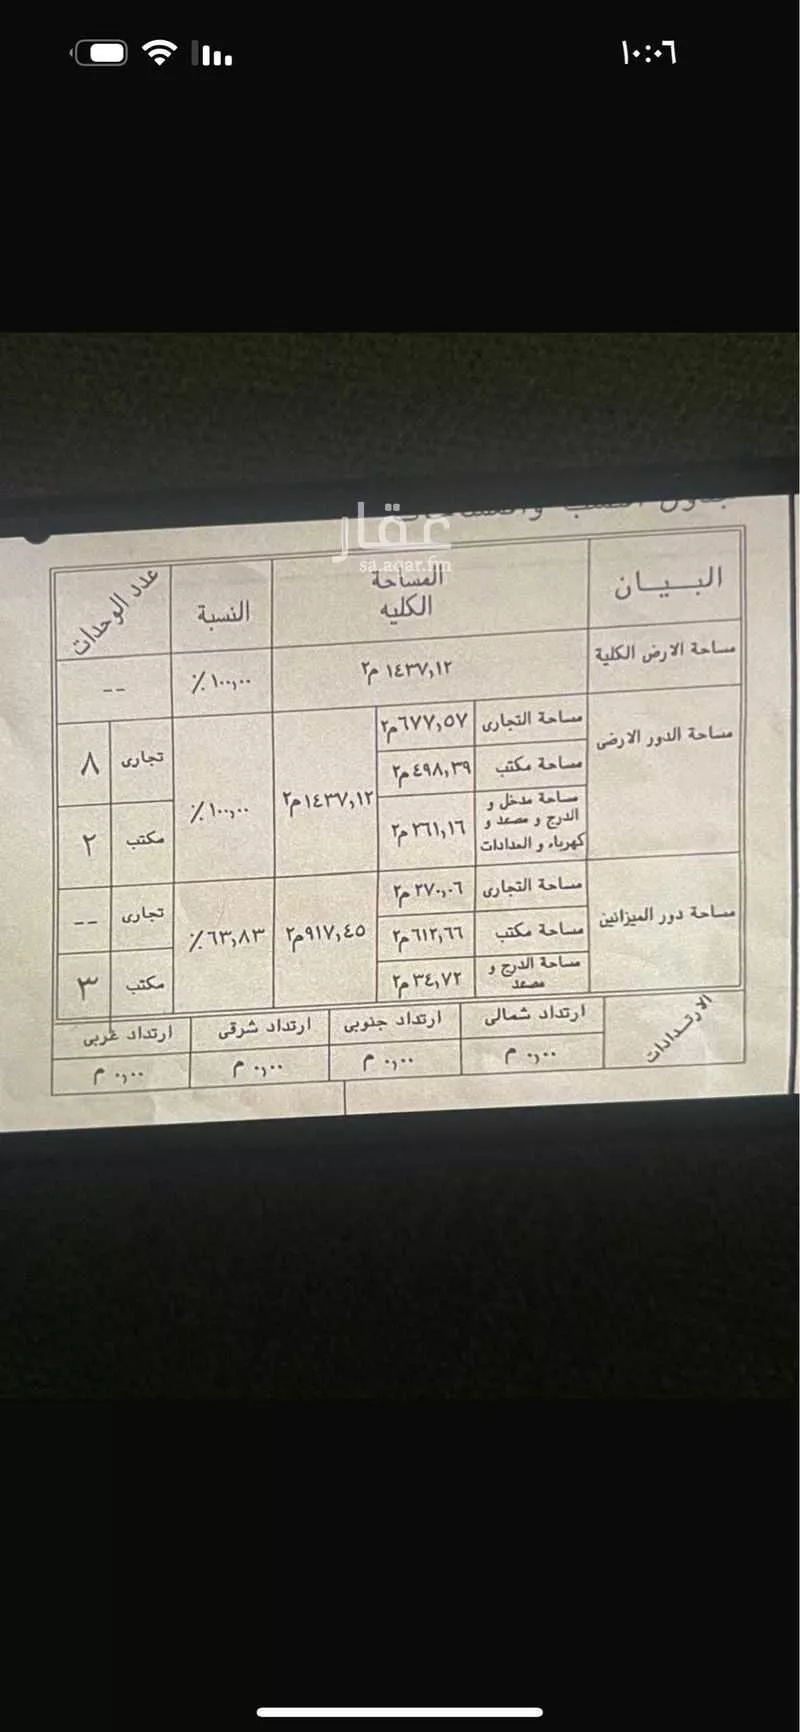 ١٠:٠٦
عقار
sa.aqar.fm
البـــيـــان
المساحة الكليه
النسبة
عدد الوحدات
مساحة الارض الكلية
١٤٣٧,١٢ م٢
١٠٠,٠٠٪
--
مساحة الدور الارضى
مساحة التجارى
٦٧٧,٥٧م٢
مساحة مكتب
٤٩٨,٣٩م٢
مساحة مدخل و
الدرج و مصعد و
كهرباء و العدادات
٢٦١,١٦ م٢
١٤٣٧,١٢م٢
١٠٠,٠٠٪
تجارى
٨
مكتب
٢
مساحة دور الميزانين
مساحة التجارى
٢٧٠,٠٦ م٢
مساحة مكتب
٦١٢,٦٦م٢
مساحة الدرج و
مصعد
٣٤,٧٢ م٢
٩١٧,٤٥م٢
٦٣,٨٣٪
تجارى
--
مكتب
٣
الارتـدادات
ارتداد شمالى
ارتداد جنوبى
ارتداد شرقى
ارتداد غربى
٠,٠٠ م
٠,٠٠ م
٠,٠٠ م
٠,٠٠ م